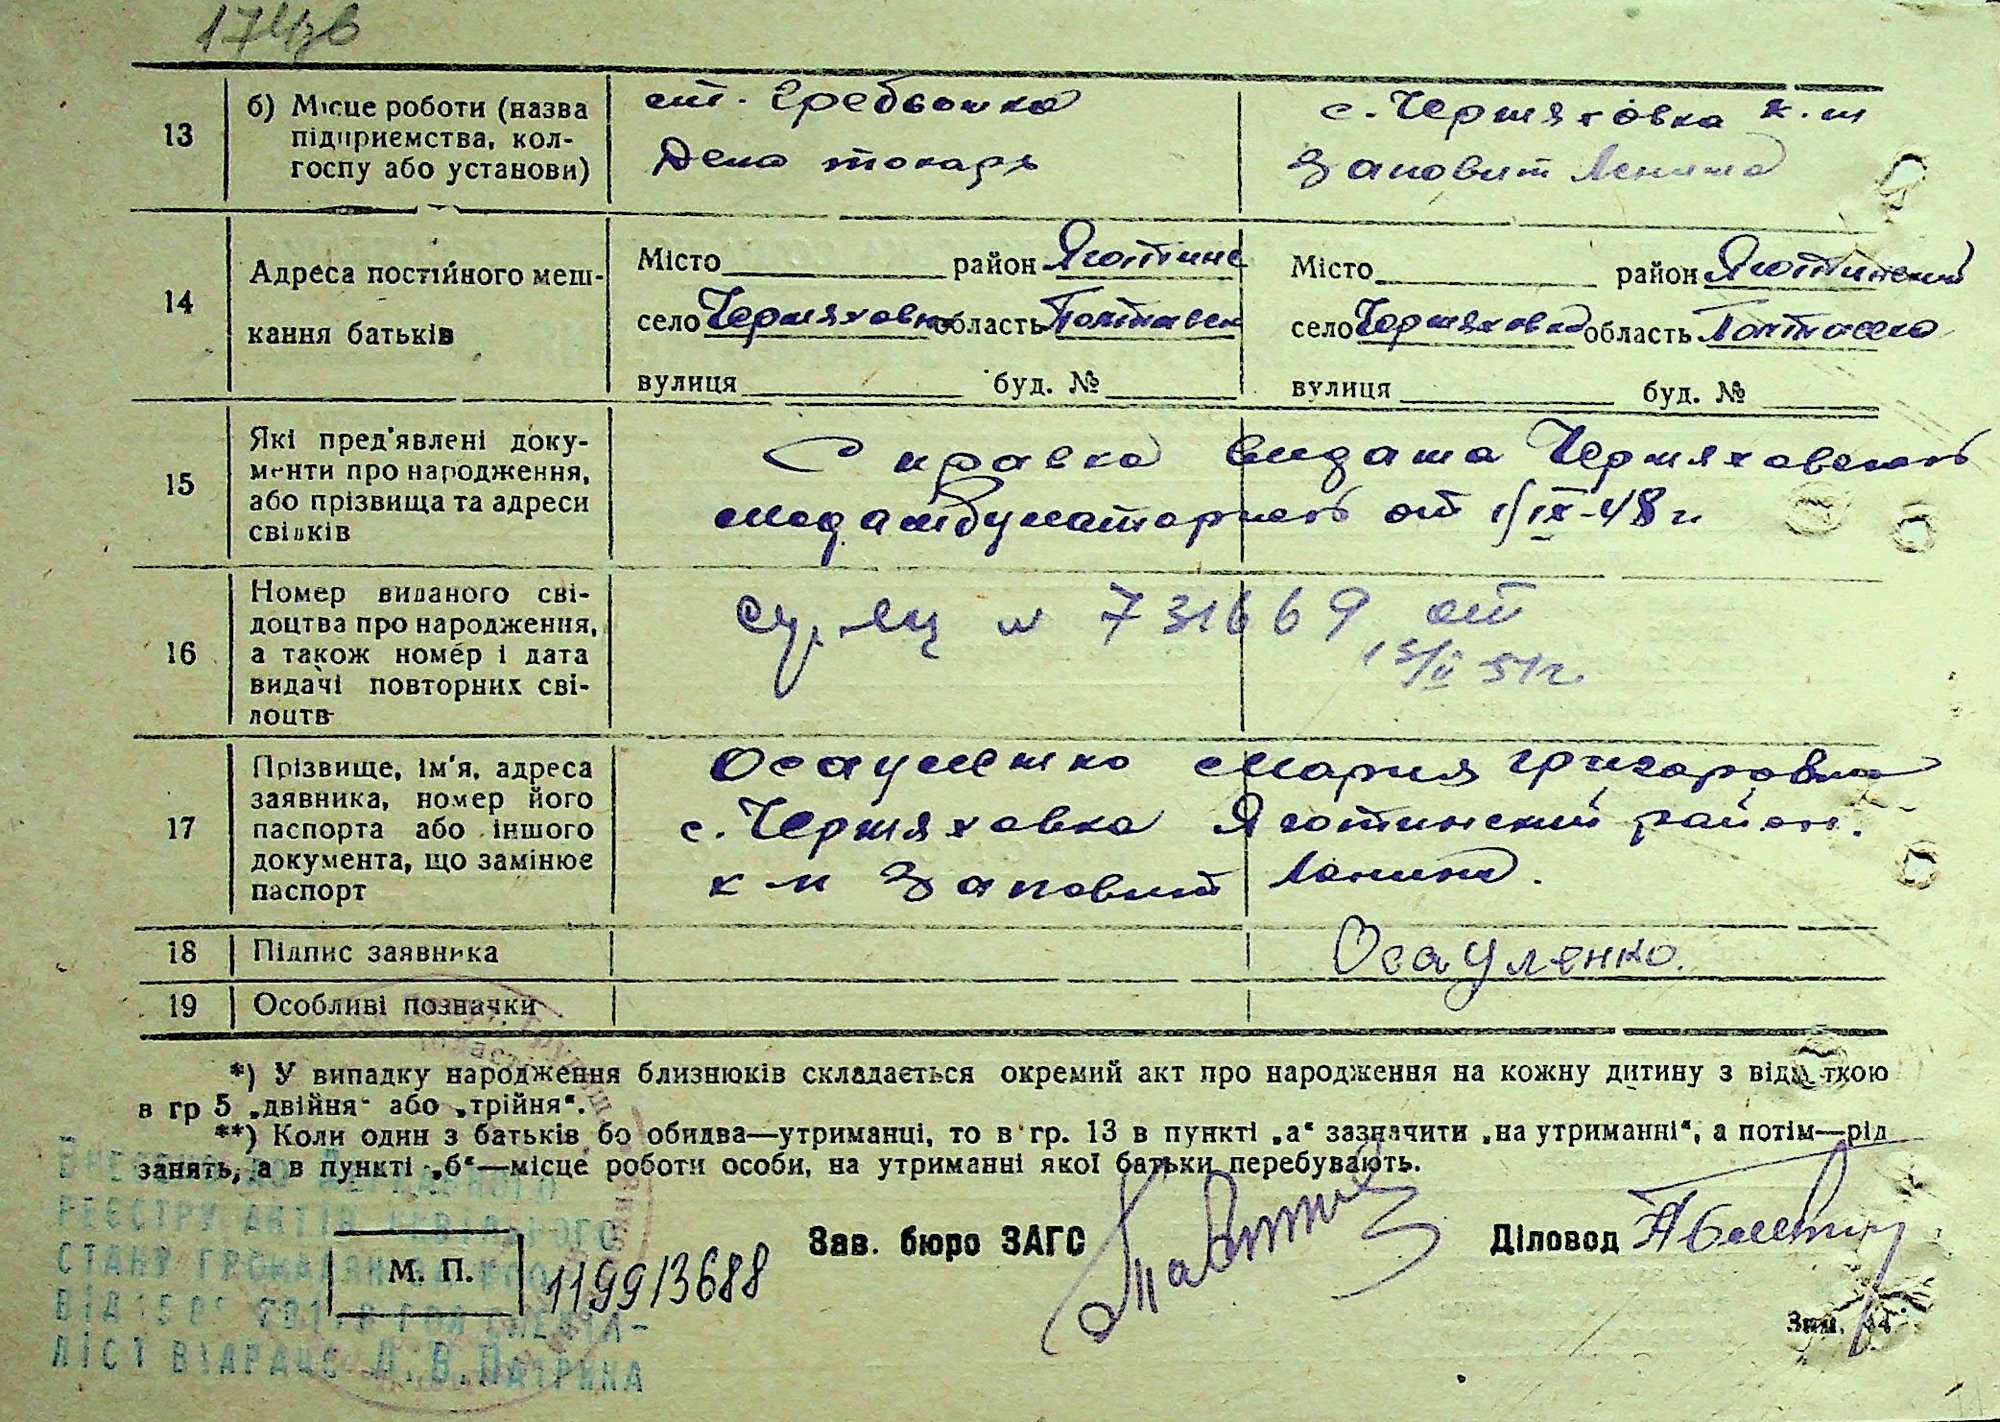 13
б) Місце роботи (назва
підприємства, кол-
госпу або установи)
ст. Гребьонка
Депо токарь
с. Черняховка к.г.
Заповит Ленина
14
Адреса постійного меш-
кання батьків
Місто район Яготинс
село Черняховка область Полтавск
вулиця буд. №
Місто район Яготинский
село Черняховка область Полтавско
вулиця буд. №
15
Які пред'явлені доку-
менти про народження,
або прізвища та адреси
свідків
Справка видана Черняховскою
медамбулаторією от 1/IX-48 г.
16
Номер виданого сві-
доцтва про народження,
а також номер і дата
видачі повторних сві-
доцтв
№ 731669 от
13/II 51г.
17
Прізвище, ім'я, адреса
заявника, номер його
паспорта або іншого
документа, що замінює
паспорт
Осауленко Мария Григоровна
с. Черняховка Яготинский район.
Заповит Ленина.
18
Підпис заявника
Осауленко.
19
Особливі позначки
*) У випадку народження близнюків складається окремий акт про народження на кожну дитину з відміткою
в гр 5 „двійня" або „трійня".
**) Коли один з батьків бо обидва—утриманці, то в гр. 13 в пункті „а" зазначити „на утриманні", а потім—рід
занять, а в пункті „б"—місце роботи особи, на утриманні якої батьки перебувають.
Внесено до Державного
реєстру актів цивільного
стану громадян
М. П.
1199/3688
Зав. бюро ЗАГС
Діловод
Зам. 44